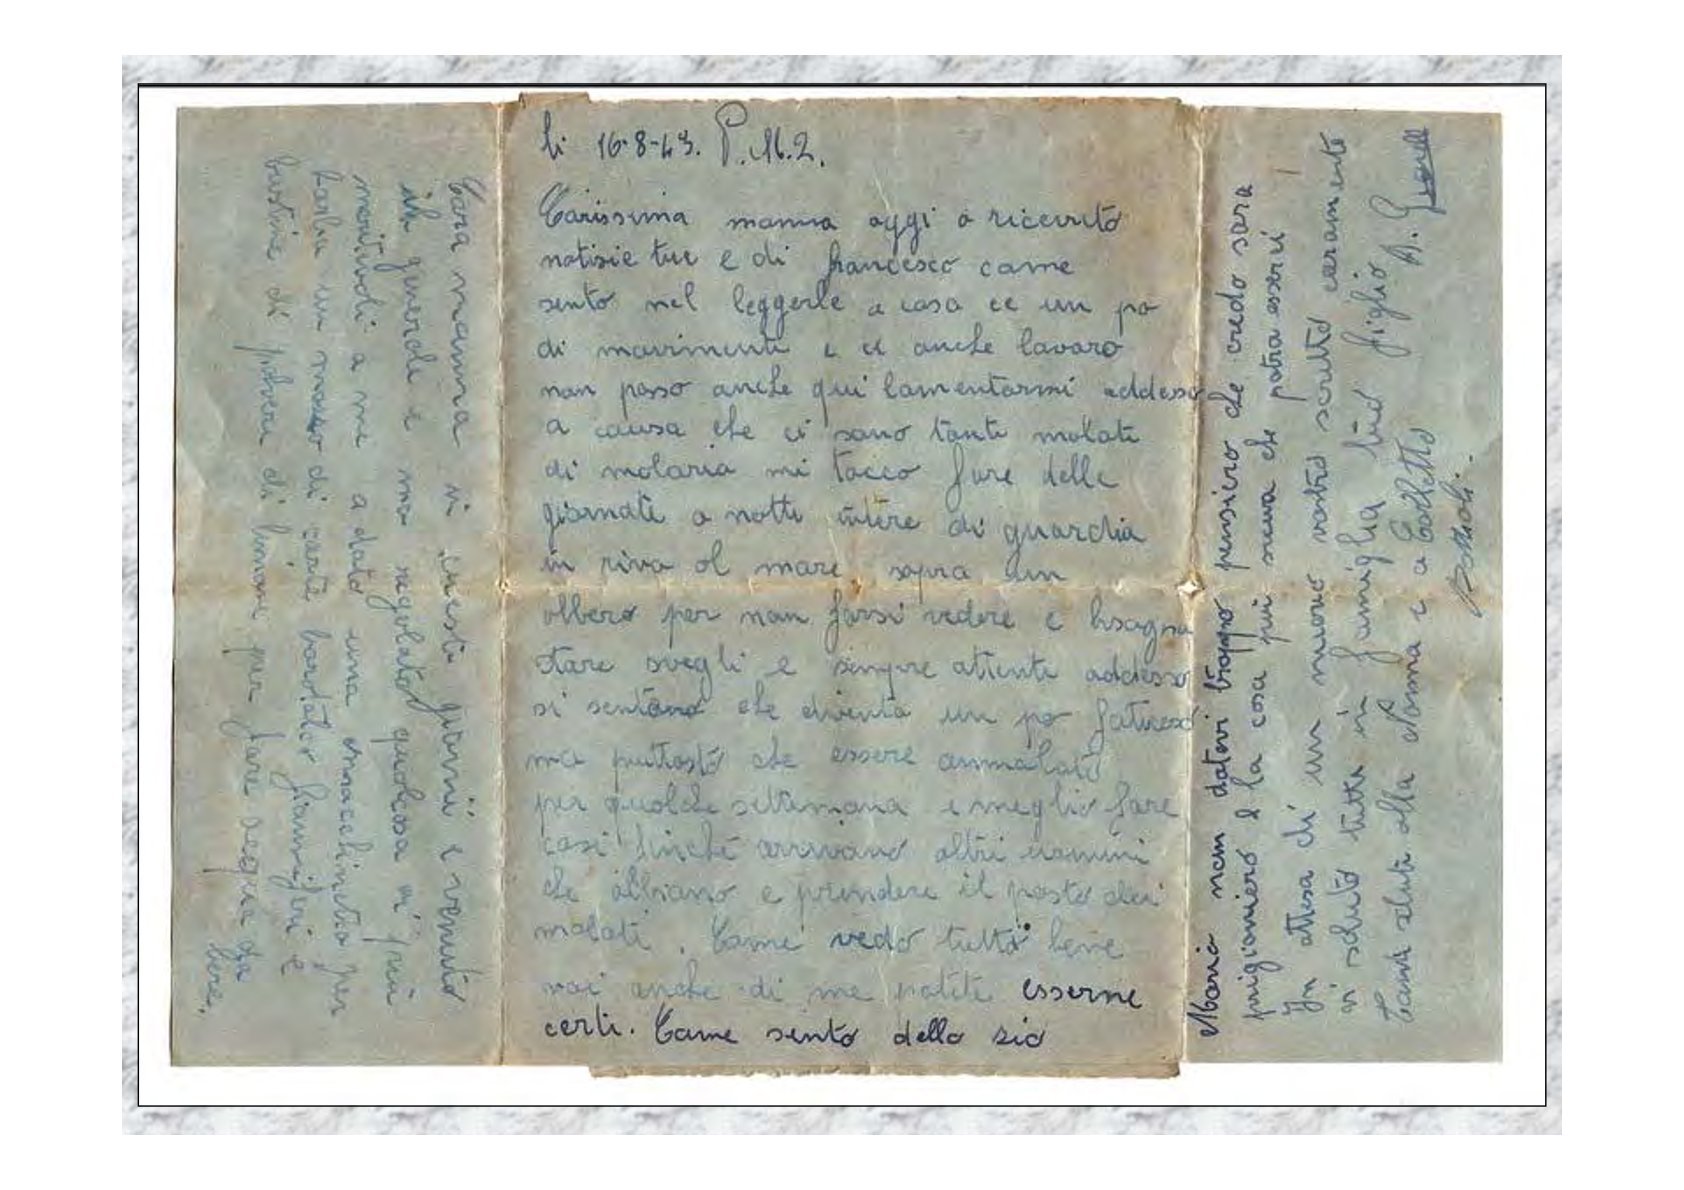 li 16-8-43. P.M.2.
Carissima mamma oggi o ricevuto
notisie tue e di francesco come
sento nel leggerle a casa ce un po
di movimenti e ce anche lavoro
non posso anche qui lamentarmi addesso
a causa che ci sono tanti malati
di malaria mi tocco fare delle
giornate o notti intere di guardia
in riva al mare sopra un
albero per non farsi vedere e bisogna
stare svegli e sempre attenti addesso
si sentono che diventa un po faticoso
ma piuttosto che essere ammalato
per qualche settimana e meglio fare
cosi finche arrivano altri uomini
che abbiano e prendere il posto dei
malati. Come vedo tutto bene
voi anche di me potete esserne
certi. Come sento dello zio
Mario non datevi troppo pensiero che credo sara
prigioniero e la cosa piu sicura che potra essere!
In attesa di un nuovo vostro scritto caramente
vi saluto tutti in famiglia tuo figlio B.
Tanti saluti alla Nonna e a
Cara mamma in questi giorni e venuto
il generale e mo regolato qualcosa ai piu
meritevoli a me a dato una macchinetta per
barba un di carte fiammiferi e
bustine di polvere di limone per fare acqua da
bere.